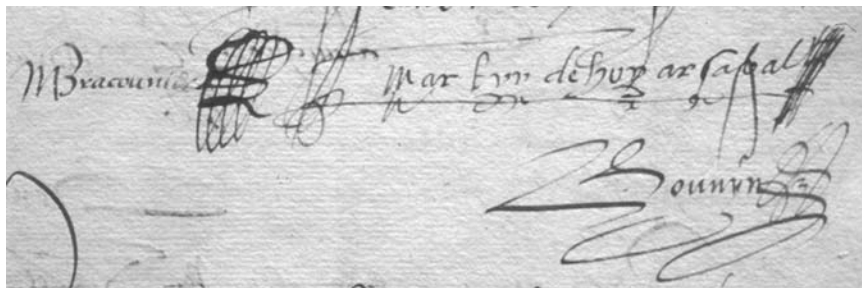 MBracounier martyn dehoyarsabal
Bounyn